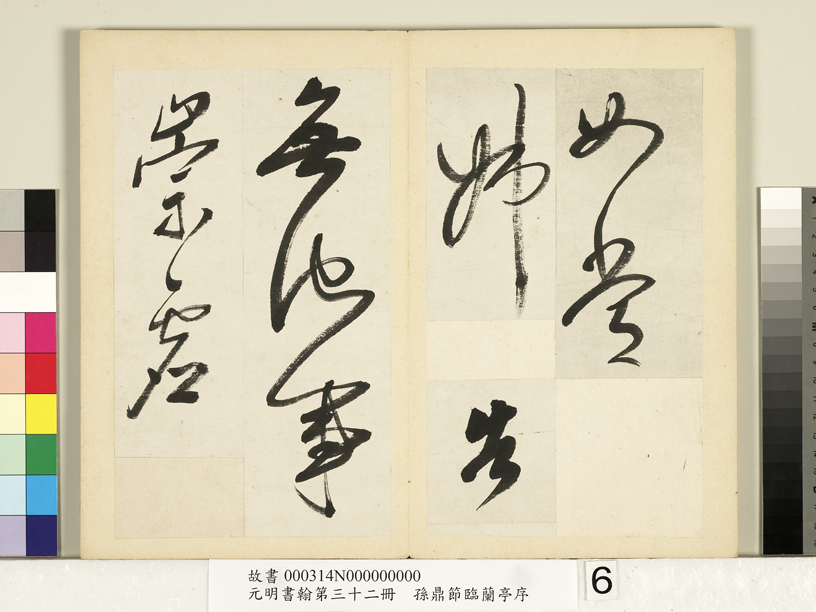 如常
姊告
無他事
崇虛
故書 000314N000000000
元明書翰第三十二冊　孫鼎節臨蘭亭序
6